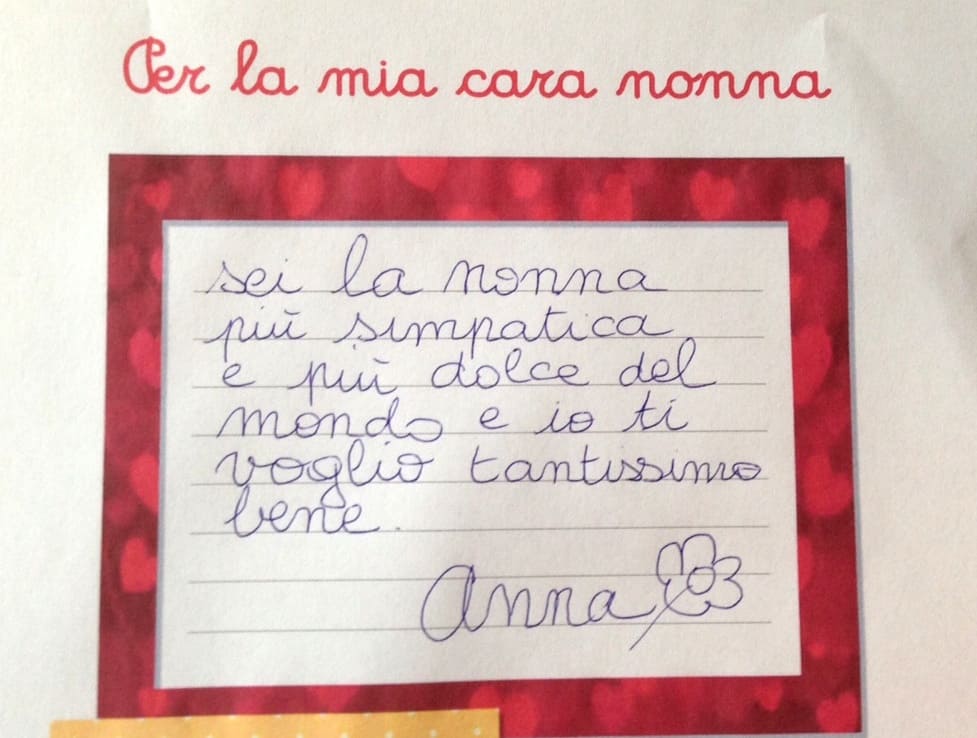 Per la mia cara nonna
sei la nonna
più simpatica
e più dolce del
mondo e io ti
voglio tantissimo
bene.
Anna